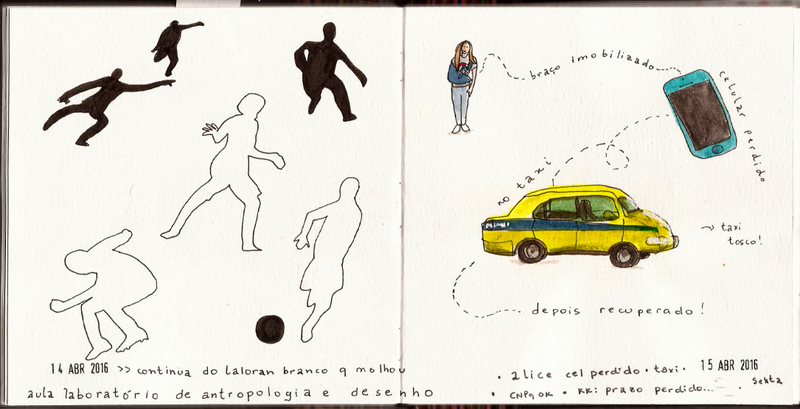 14 ABR 2016 >> continua do taloran branco q molhou
aula laboratório de antropologia e desenho
braço imobilizado
celular perdido
no taxi
→ taxi
tosco!
depois recuperado!
• alice cel perdido • taxi • 15 ABR 2016
• CNPq OK • KK: prazo perdido... • sexta